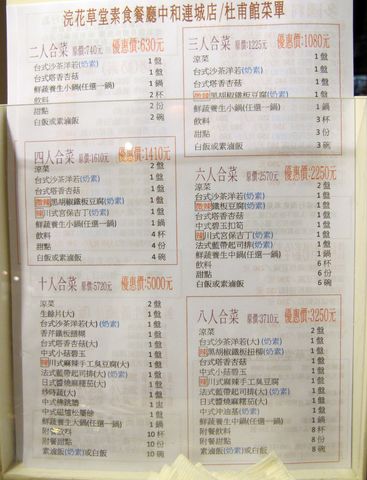 浣花草堂素食餐廳中和連城店/杜甫館菜單
二人合菜 原價:740元 優惠價:630元
台式沙茶洋若(奶素) 1盤
台式塔香杏菇 1盤
鮮蔬養生小鍋(任選一鍋) 1鍋
飲料 2杯
甜點 2份
白飯或素滷飯 2碗
三人合菜 原價:1225元 優惠價:1080元
涼菜 1盤
台式沙茶洋若(奶素) 1盤
台式塔香杏菇 1盤
微辣黑胡椒鐵板豆腐(奶素) 1盤
鮮蔬養生小鍋(任選一鍋) 1鍋
飲料 3杯
甜點 3份
白飯或素滷飯 3碗
四人合菜 原價:1610元 優惠價:1410元
涼菜 1盤
台式沙茶洋若(奶素) 1盤
台式塔香杏菇 1盤
微辣黑胡椒鐵板豆腐(奶素) 1盤
辣川式宮保吉丁(奶素) 1盤
鮮蔬養生小鍋(任選一鍋) 1鍋
飲料 4杯
甜點 4份
白飯或素滷飯 4碗
六人合菜 原價:2570元 優惠價:2250元
涼菜 2盤
台式沙茶洋若(奶素) 1盤
台式塔香杏菇 1盤
微辣鐵板豆腐(奶素) 1盤
中式碧玉扣筍 1盤
辣川式宮保吉丁(奶素) 1盤
法式藍帶起司排(奶素) 1盤
鮮蔬養生中鍋(任選一鍋) 1鍋
飲料 6杯
甜點 6份
白飯或素滷飯 6碗
十人合菜 原價:5720元 優惠價:5000元
涼菜 2盤
生餘片(大) 1盤
台式沙茶洋若(大)(奶素) 1盤
香芹鐵板麵糊 1盤
台式塔香杏菇(大) 1盤
中式小菇碧玉 1盤
辣川式麻辣手工臭豆腐(大) 1盤
法式藍帶起司排(大)(奶素) 1盤
日式醬燒麻糬茄(大) 1盤
炒時蔬(大) 1盤
中式佛跳牆 1盅
中式磁爐松 1盤
鮮蔬養生中鍋(任選一鍋) 1鍋
附餐飲料 10杯
附餐甜點 10份
素滷飯(奶素)或白飯 10碗
八人合菜 原價:3710元 優惠價:3250元
涼菜 2盤
台式沙茶洋若(大)(奶素) 1盤
辣黑胡椒鐵板扭柳(奶素) 1盤
台式塔香杏菇(大) 1盤
中式小菇碧玉 1盤
辣川式麻辣手工臭豆腐 1盤
法式藍帶起司排(大)(奶素) 1盤
日式醬燒麻糬茄(大) 1盤
中式沖油基(奶素) 1盤
鮮蔬養生中鍋(任選一鍋) 1鍋
附餐飲料 8杯
附餐甜點 8份
素滷飯(奶素)或白飯 8碗